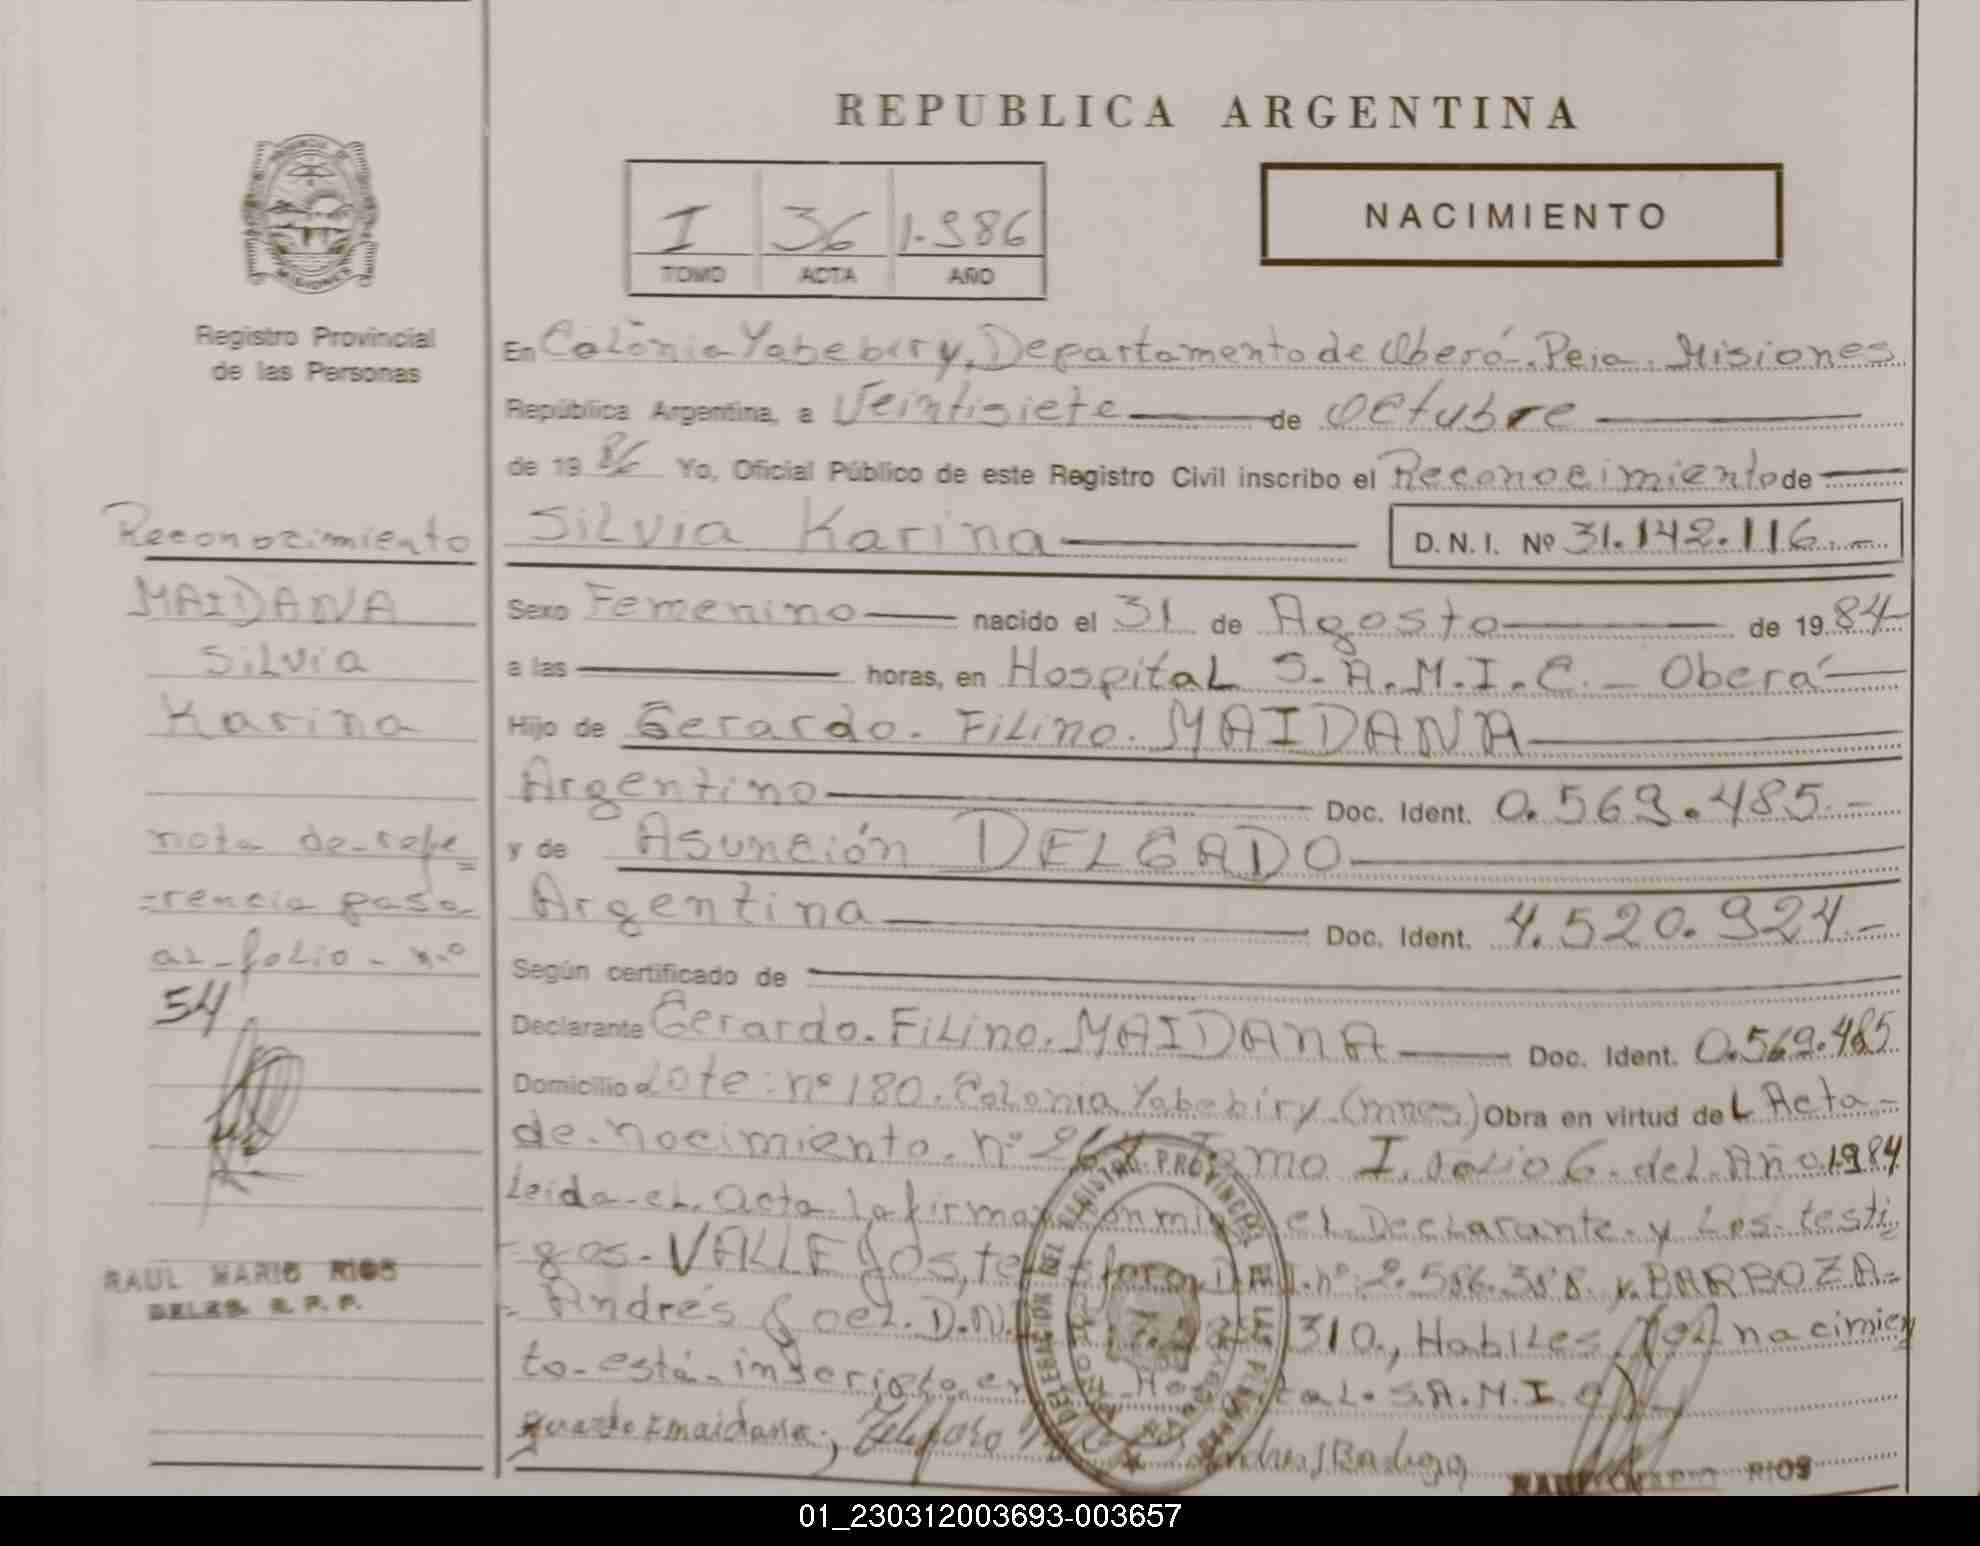 REPUBLICA ARGENTINA
NACIMIENTO
I 36 1.986
TOMO ACTA AÑO
Registro Provincial
de las Personas
En Colonia Yabebiry, Departamento de Oberá. Pcia. Misiones
República Argentina, a Veintisiete de Octubre
de 19 86 Yo, Oficial Público de este Registro Civil inscribo el Reconocimiento de
Silvia Karina D.N.I. Nº 31.142.116.-
Sexo Femenino nacido el 31 de Agosto de 19 84
a las horas, en Hospital S.A.M.I.C. - Oberá
Hijo de Gerardo. Filino. MAIDANA
Argentino Doc. Ident. 0.569.485.-
y de Asunción DELGADO
Argentina Doc. Ident. 4.520.924.-
Según certificado de
Declarante Gerardo. Filino. MAIDANA Doc. Ident. 0.569.485
Domicilio Lote: nº 180. Colonia Yabebiry (mnes) Obra en virtud de L Acta-
de nacimiento. nº Tomo I. Folio 6. del. Año 1984
Leida-el. acta. la firma el Declarante. y Los. testi
=gos. VALLEJOS, y BARBOZA=
= Andrés Joel. D.N.I. 310., Habiles. (el nacimien
to-está-inscripto en Hospital. S.A.M.I.C)
Reconocimiento
MAIDANA
Silvia
Karina
nota de-refe=
=rencia pasa
al-folio-nº
54
RAUL MARIO RIOS
DELEG. R. P. P.
REGISTRO PROVINCIAL
DELEGACION DEL
RIOS
01_230312003693-003657